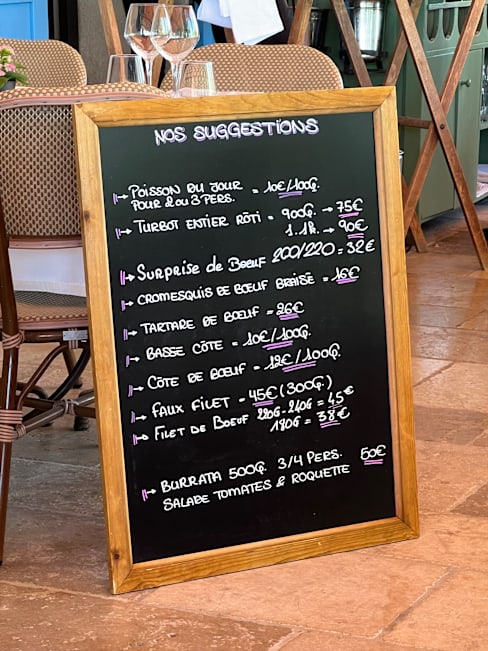 NOS SUGGESTIONS
POISSON DU JOUR = 10€/100G.
POUR 2 OU 3 PERS.
TURBOT ENTIER RÔTI = 900G. → 75€
1.1K. → 90€
SURPRISE de BŒUF 200/220 = 32€
CROMESQUIS DE BŒUF BRAISÉ = 16€
TARTARE DE BŒUF = 26€
BASSE CÔTE = 10€/100G.
CÔTE DE BŒUF = 12€/100G.
FAUX FILET = 45€ (300G.)
FILET DE BOEUF 220G-240G = 45€
180G = 38€
BURRATA 500G. 3/4 PERS. 50€
SALADE TOMATES & ROQUETTE